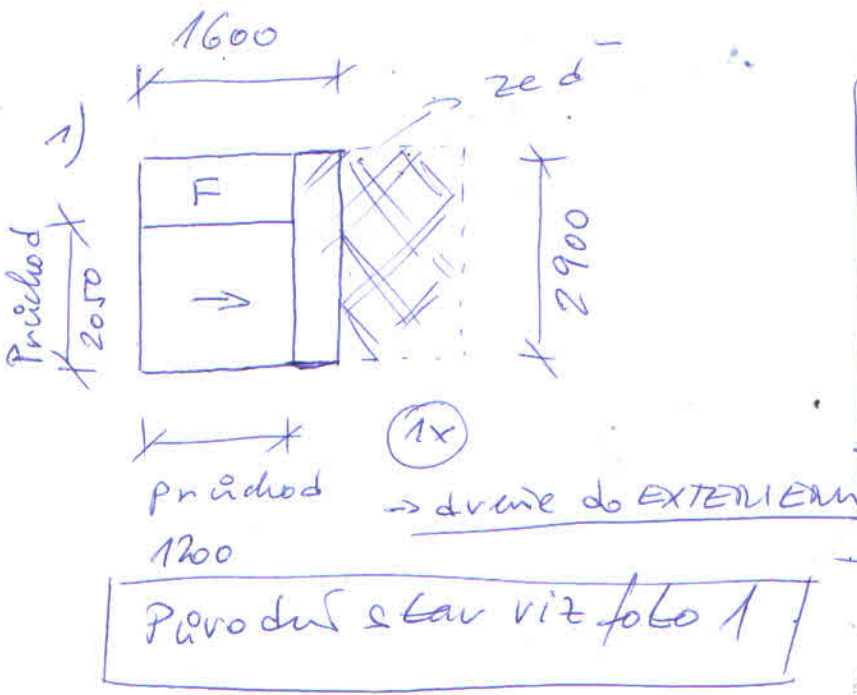 1600
zeď
1)
F
Průchod
2050
→
2900
1x
průchod
→ dveře do EXTERIERU
1200
Původní stav viz foto 1